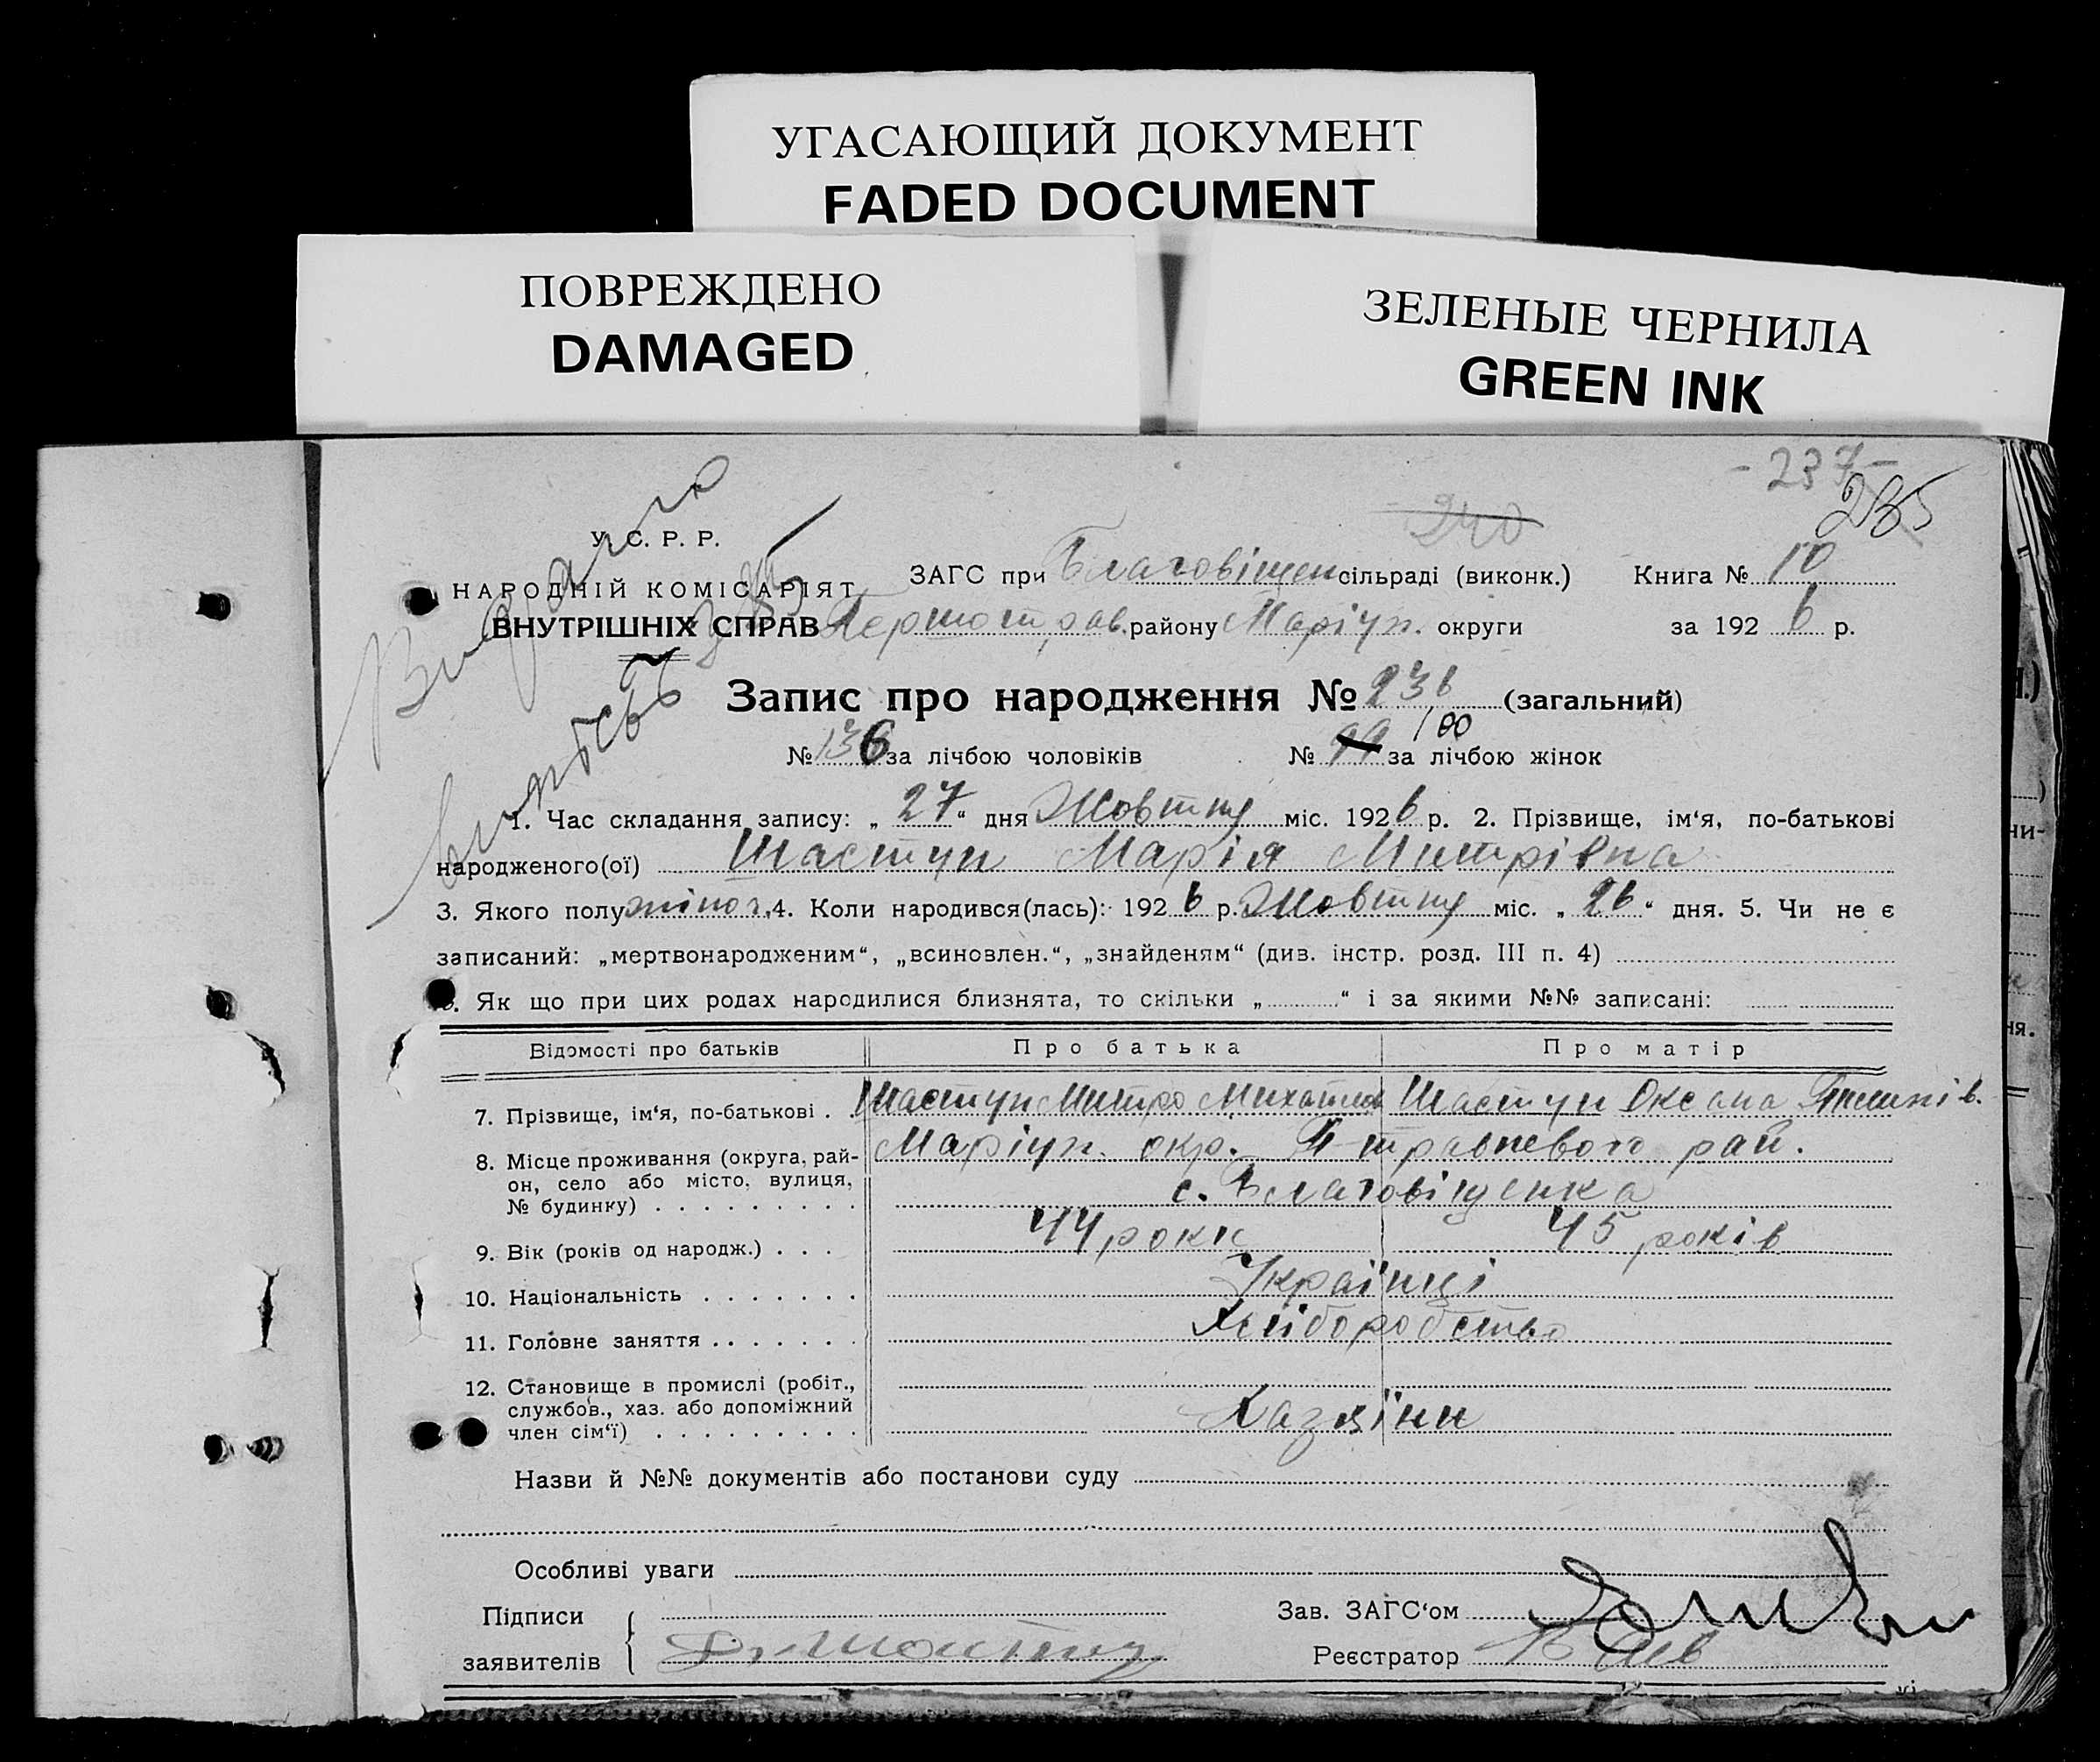 УГАСАЮЩИЙ ДОКУМЕНТ
FADED DOCUMENT
ПОВРЕЖДЕНО
DAMAGED
ЗЕЛЕНЫЕ ЧЕРНИЛА
GREEN INK
-237-
235
240
У. С. Р. Р.
НАРОДНІЙ КОМІСАРІЯТ
ВНУТРІШНІХ СПРАВ
ЗАГС при Благовіщен сільраді (виконк.) Книга № 10
Першотрав. району Маріуп. округи за 192 6 р.
Запис про народження № 236 (загальний)
№ 136 за лічбою чоловіків № 99 100 за лічбою жінок
1. Час складання запису: „ 27 “ дня Жовтну міс. 192 6 р. 2. Прізвище, ім‘я, по-батькові
народженого(ої) Шастун Марія Митрівна
3. Якого полу жіноч. 4. Коли народився(лась): 192 6 р. Жовтну міс. „ 26 “ дня. 5. Чи не є
записаний: „мертвонародженим“, „всиновлен.“, „знайденям“ (див. інстр. розд. III п. 4)
6. Як що при цих родах народилися близнята, то скільки „ “ і за якими №№ записані:
Відомості про батьків Про батька Про матір
7. Прізвище, ім‘я, по-батькові . Шастун Митро Михайлов Шастун Оксана
8. Місце проживання (округа, рай- Маріуп. окр. П-травневого рай.
он, село або місто, вулиця, с. Благовіщенка
№ будинку)
9. Вік (років од народж.) . . . 44 роки 45 років
10. Національність Українці
11. Головне заняття Хліборобство
12. Становище в промислі (робіт.,
службов., хаз. або допоміжний Хазяїни
член сім‘ї)
Назви й №№ документів або постанови суду
Особливі уваги
Підписи
заявителів
Зав. ЗАГС‘ом
Реєстратор